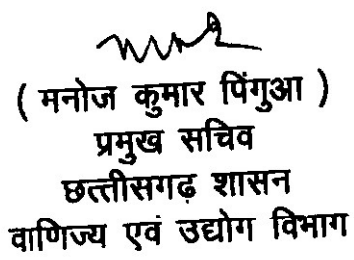 ( मनोज कुमार पिंगुआ )
प्रमुख सचिव
छत्तीसगढ़ शासन
वाणिज्य एवं उद्योग विभाग